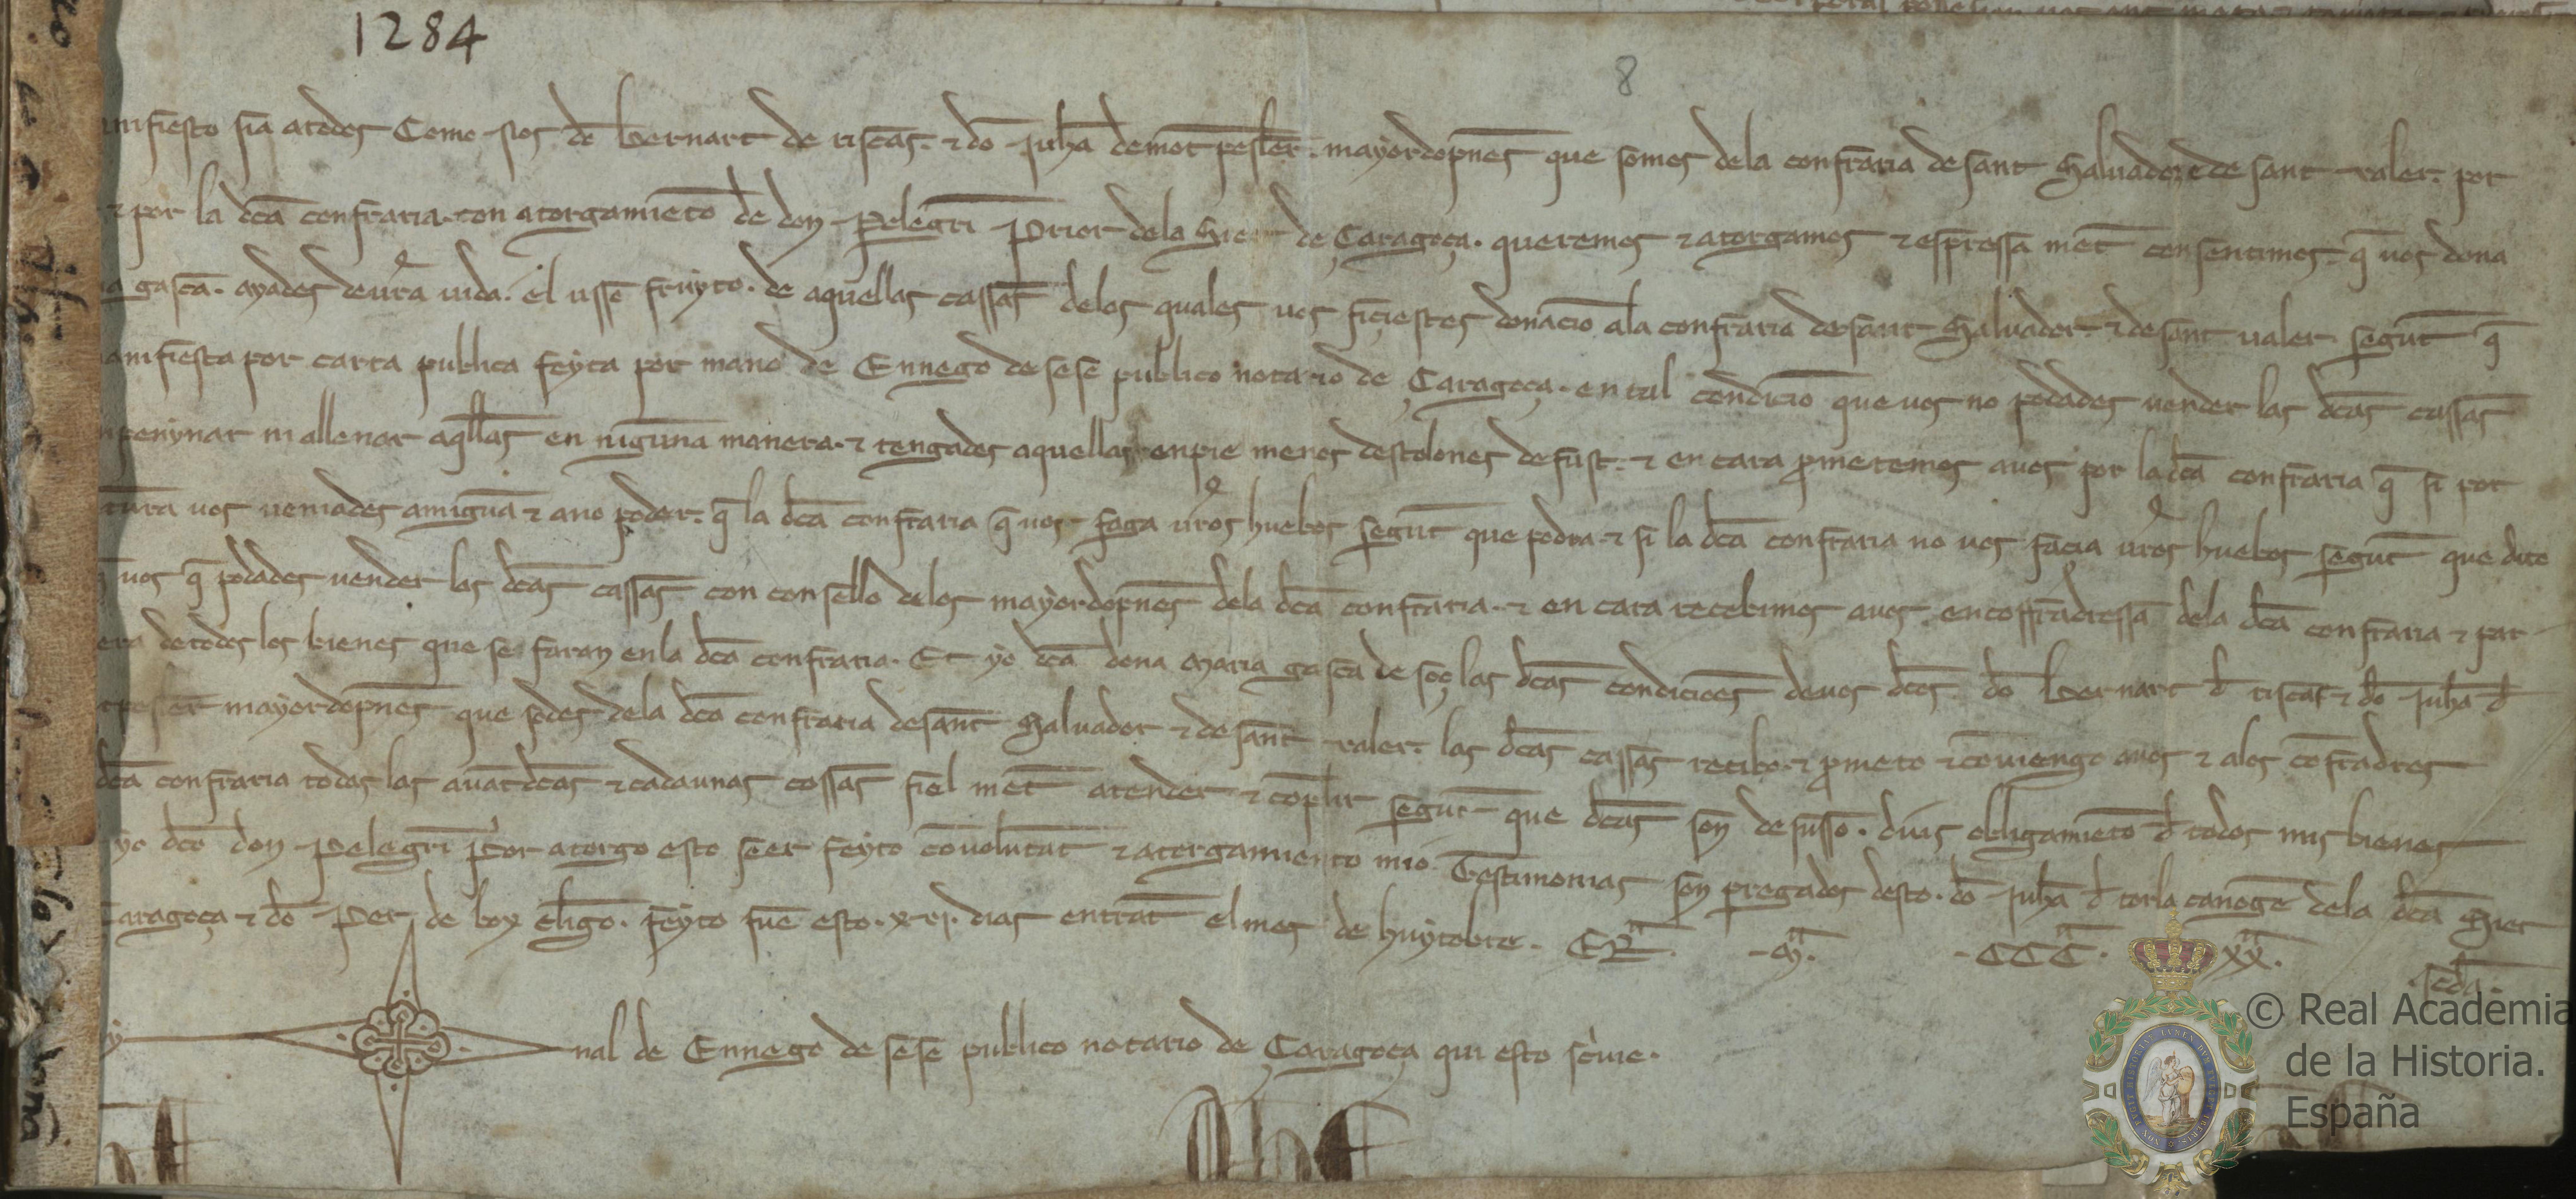 1284
8
nifiesto sia atodos Como nos do Bernart de tiscas. ⁊ do Juha demotpesler. mayordopnes que somos dela confraria de sant Saluador ⁊ de sant valer. por
⁊ por la dca confraria. con atorgamieto de don Pelegri Prior dela Sie de Çaragoça. queremos ⁊ atorgamos ⁊ espressa met consentimos. q̄ uos dona
a gasca. ayades deura uida. el usso fruyto. de aquellas cassas delos quales uos fiziestes donacio ala confraria de sant Saluador. ⁊ de sant ualer. segut q̄
anifiesta por carta publica feyta por mano de Ennego de sese publico notario de Çaragoça. en tal condicio que uos no podades uender las dcas cassas
penynar ni allenar aqllas en niguna manera. ⁊ tengades aquellas en pie menos destolones de fust. ⁊ en cara pmetemos auos por la dca confraria q̄ si por
tura uos ueniades amigua ⁊ ano poder. q̄ la dca confraria q̄ uos faga uros huebos segut que podra. ⁊ si la dca confraria no uos facia uros huebos segut que dito
uos q̄ podades uender las dcas cassas con consello delos mayordopnes dela dca confraria. ⁊ en cara recebimos auos. en coffradressa dela dca confraria ⁊ par
era de todos los bienes que se faran en la dca confraria. Et yo dca dona Maria gasca de soç las dcas condicioes deuos dcos. do Bernart d tiscas ⁊ do Juha d
pesler mayordopnes que sodes dela dca confraria de sant Saluador ⁊ de sant valer. las dcas cassas recibo. ⁊ pmeto ⁊ couiengo auos ⁊ alos cofradres
dca confraria todas las auatdcas ⁊ cadaunas cossas fiel met atender ⁊ coplir segut que dcas son de susso. dius obligamieto d todos mis bienes
yo dco don Pelegri pior atorgo esto seer feyto couolutat ⁊ atorgamiento mio. Testimonias son pregados desto. do Juha d torla canoge dela dca Sie
Çaragoça ⁊ do Per de box cligo. feyto fue esto. x.vj. dias entrat el mes de huytobre. ERa. Ma. CCCa. xxa.
scda.
nal de Ennego de sese publico notario de Çaragoça qui esto scriue.
© Real Academia
de la Historia.
España